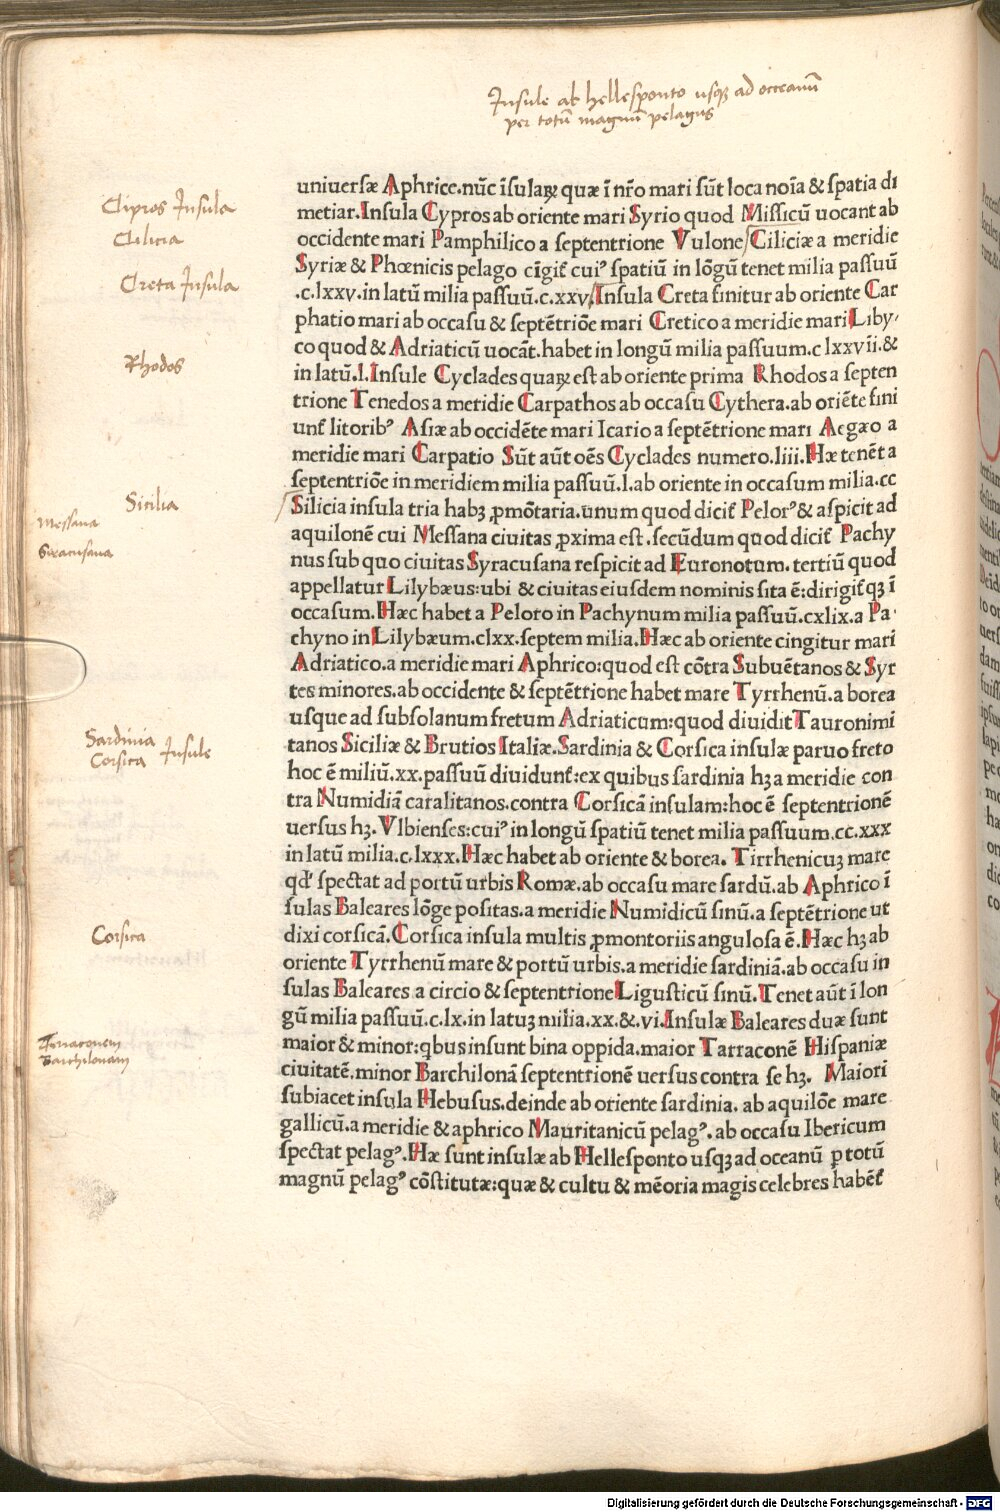 Insule ab hellesponto usqꝫ ad occeanū
per totū magnū pelagus
universæ Aphrice.nūc īsulaꝝ quæ ī nr̄o mari sūt loca noīa & spatia di
metiar.Insula Cypros ab oriente mari Syrio quod Missicū uocant ab
occidente mari Pamphilico a septentrione Vulone Ciliciæ a meridie
Syriæ & Phœnicis pelago cīgit᷑ cuiꝰ spatiū in lōgū tenet milia passuū
.c.lxxv.in latū milia passuū.c.xxv.Insula Creta finitur ab oriente Car
phatio mari ab occasu & septētriōe mari Cretico a meridie mari Liby-
co quod & Adriaticū uocāt.habet in longū milia passuum.clxxvii.&
in latū.l.Insule Cyclades quaꝝ est ab oriente prima Rhodos a septen
trione Tenedos a meridie Carpathos ab occasu Cythera.ab oriēte fini
unt᷑ litoribꝰ Asiæ ab occidēte mari Icario a septētrione mari Aegæo a
meridie mari Carpatio Sūt aūt oēs Cyclades numero.liii.Hæ tenēt a
septentriōe in meridiem milia passuū.l.ab oriente in occasum milia.cc
Silicia insula tria habꝫ ꝓmōtaria.unum quod dicit᷑ Pelorꝰ & aspicit ad
aquilonē cui Messana ciuitas ꝓxima est.secūdum quod dicit᷑ Pachy
nus sub quo ciuitas Syracusana respicit ad Euronotum.tertiū quod
appellatur Lilybæus:ubi & ciuitas eiusdem nominis sita ē:dirigit᷑qꝫ ī
occasum.Hæc habet a Peloro in Pachynum milia passuū.cxlix.a Pa-
chyno in Lilybæum.clxx.septem milia.Hæc ab oriente cingitur mari
Adriatico.a meridie mari Aphrico:quod est cōtra Subuētanos & Syr
tes minores.ab occidente & septētrione habet mare Tyrrhenū.a borea
usque ad subsolanum fretum Adriaticum:quod diuidit Tauronimi
tanos Siciliæ & Brutios Italiæ.Sardinia & Corsica insulæ paruo freto
hoc ē miliū.xx.passuū diuidunt᷑:ex quibus sardinia hꝫ a meridie con
tra Numidiā caralitanos.contra Corsicā insulam:hoc ē septentrionē
uersus hꝫ.Vlbienses:cuiꝰ in longū spatiū tenet milia passuum.cc.xxx
in latū milia.c.lxxx.Hæc habet ab oriente & borea.Tirrhenicuꝫ mare
qd' spectat ad portū urbis Romæ.ab occasu mare sardū.ab Aphrico ī
sulas Baleares lōge positas.a meridie Numidicū sinū.a septētrione ut
dixi corsicā.Corsica insula multis ꝓmontoriis angulosa ē.Hæc hꝫ ab
oriente Tyrrhenū mare & portū urbis.a meridie sardiniā.ab occasu in
sulas Baleares a circio & septentrione Ligusticū sinū.Tenet aūt ī lon
gū milia passuū.c.lx.in latuꝫ milia.xx.&.vi.Insulæ Baleares duæ sunt
maior & minor:qbus insunt bina oppida.maior Tarraconē Hispaniæ
ciuitatē.minor Barchilonā septentrionē uersus contra se hꝫ. Maiori
subiacet insula Hebusus.deinde ab oriente sardinia.ab aquilōe mare
gallicū.a meridie & aphrico Mauritanicū pelagꝰ.ab occasu Ibericum
spectat pelagꝰ.Hæ sunt insulæ ab Hellesponto usqꝫ ad oceanū ꝑ totū
magnū pelagꝰ cōstitutæ:quæ & cultu & mēoria magis celebres habēt᷑
Cipros Insula
Cilicia
Creta Insula
Rhodos
Sicilia
Messana
Siracusana
Sardinia
Corsica Insule
Corsica
Terraconem
Barchilonam
Digitalisierung gefördert durch die Deutsche Forschungsgemeinschaft - DFG